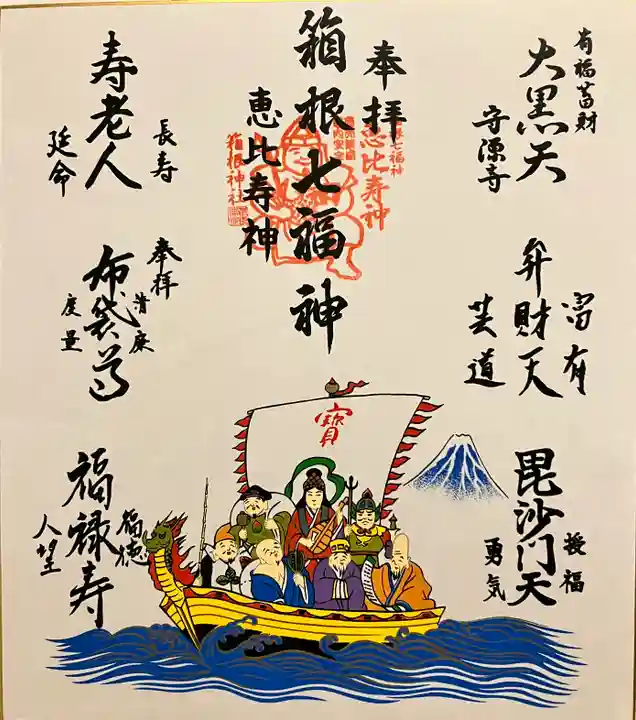 有福蓄財
大黒天
守源寺
富有
弁財天
芸道
授福
毘沙門天
勇気
奉拝
箱根七福神
恵比寿神
七福神
恵比寿神
箱根神社
長寿
寿老人
延命
奉拝
清廉
布袋尊
度量
福徳
福禄寿
人望
寳